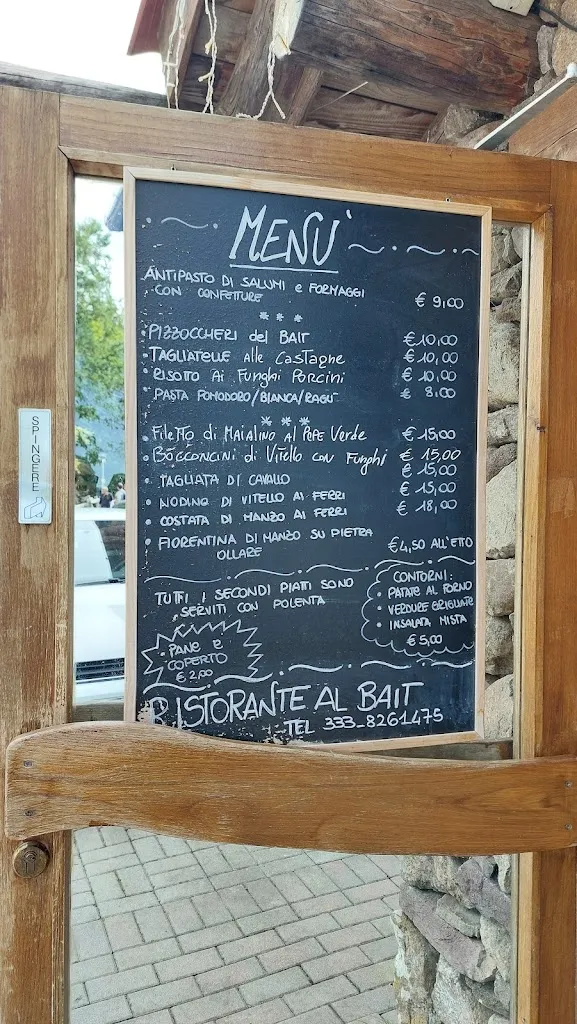 MENU'
ANTIPASTO DI SALUMI e FORMAGGI
CON CONFETTURE € 9,00
***
• PIZZOCCHERI del BAIT € 10,00
• TAGLIATELLE Alle CASTAGNE € 10,00
• RISOTTO Ai FUNGHI PORCINI € 10,00
• PASTA POMODORO/BIANCA/RAGU' € 8,00
***
• FILETTO di MAIALINO AL PEPE VERDE € 15,00
• BOCCONCINI di VITELLO CON FUNGHI € 15,00
• TAGLIATA DI CAVALLO € 15,00
• NODINO DI VITELLO AI FERRI € 15,00
• COSTATA DI MANZO AI FERRI € 18,00
• FIORENTINA DI MANZO SU PIETRA
OLLARE € 4,50 ALL'ETTO
TUTTI I SECONDI PIATTI SONO
SERVITI CON POLENTA
CONTORNI:
• PATATE AL FORNO
• VERDURE GRIGLIATE
• INSALATA MISTA
€ 5,00
• PANE e
COPERTO
€ 2,00
RISTORANTE AL BAIT
TEL 333_8261475
SPINGERE